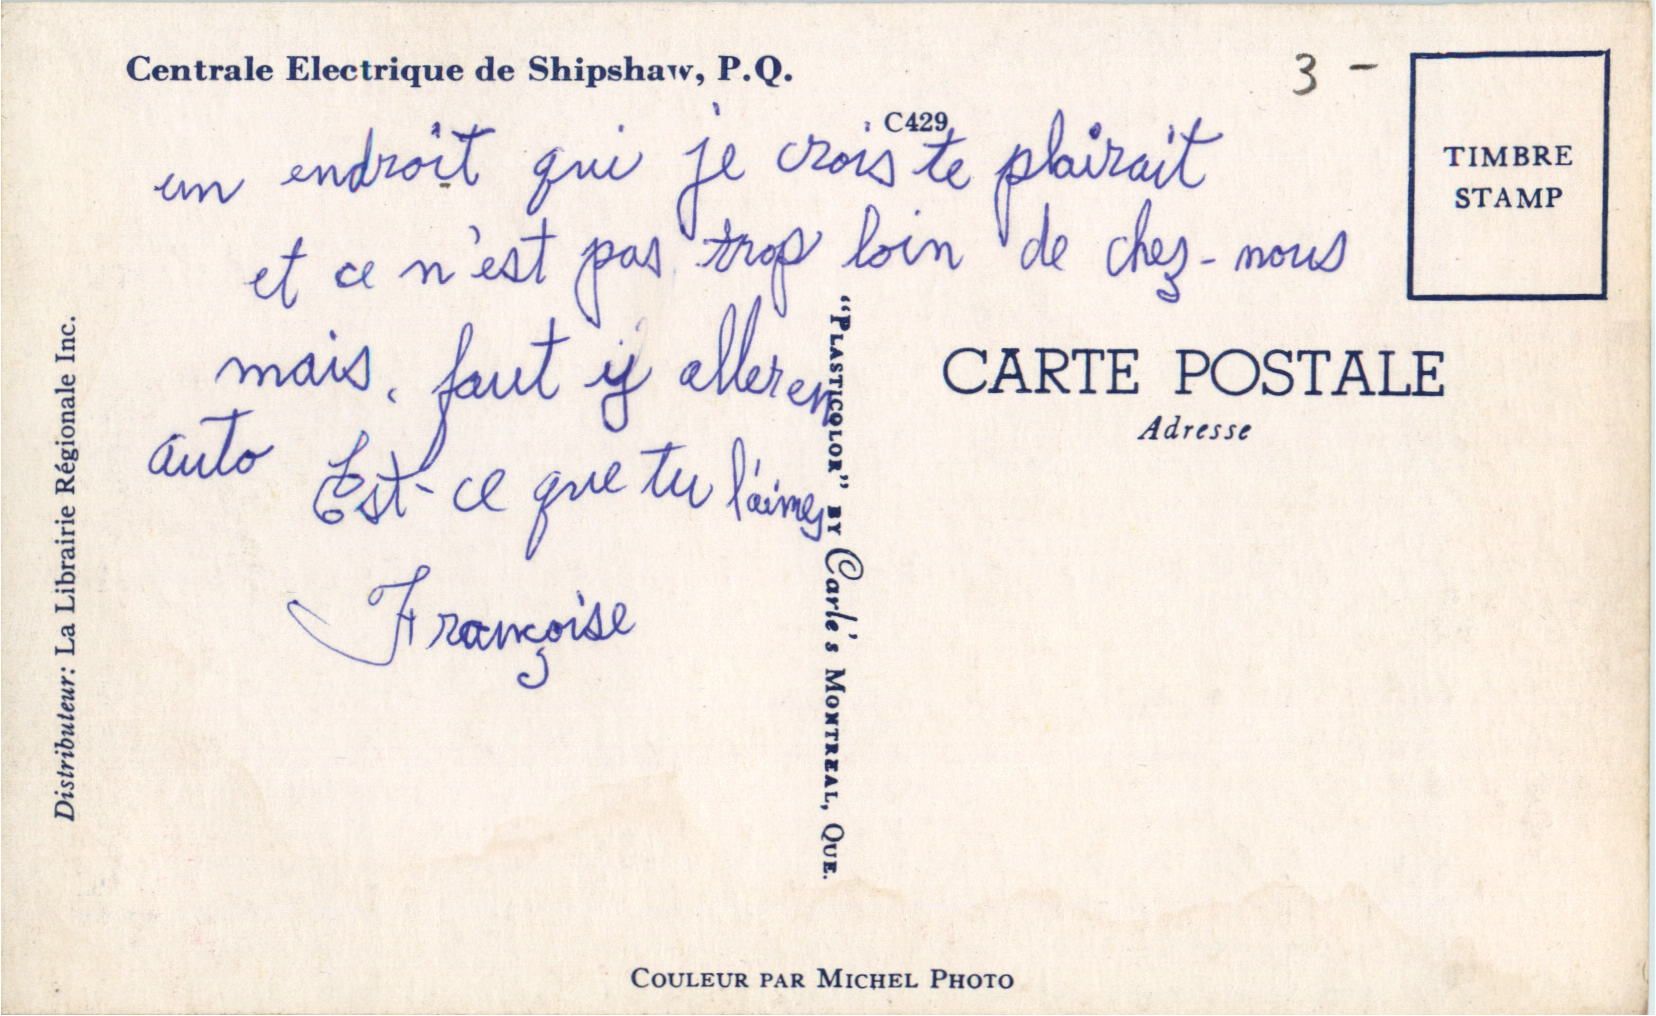 Centrale Electrique de Shipshaw, P.Q.
3 -
C429
TIMBRE
STAMP
un endroit qui je crois te plairait
et ce n'est pas trop loin de chez-nous
mais, faut y aller en
auto Est-ce que tu l'aimes
Françoise
CARTE POSTALE
Adresse
Distributeur: La Librairie Régionale Inc.
"PLASTICOLOR" BY Carle's MONTREAL, QUE.
COULEUR PAR MICHEL PHOTO